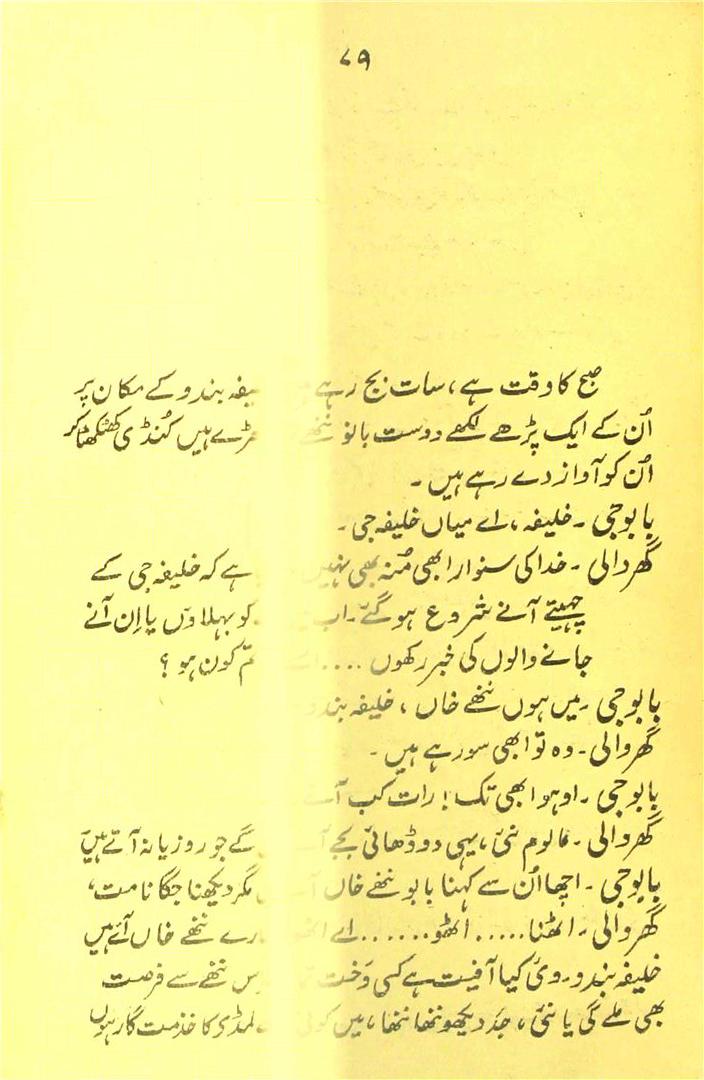 ۷۹
صبح کا وقت ہے، سات بج رہے خلیفہ بندو کے مکان پر
اُن کے ایک پڑھے لکھے دوست بابو ننھے کھڑے ہیں کُنڈی کھٹکھٹا کر
اُن کو آواز دے رہے ہیں ۔
بابوجی ۔ خلیفہ، اے میاں خلیفہ جی ۔
گھر والی ۔ خدا کی سنوار ابھی مُنہ بھی نہیں ہے کہ خلیفہ جی کے
چہیتے آنے شروع ہو گئے ۔ اب کو بہلاؤں یا اِن آنے
جانے والوں کی خبر رکھوں .... کون ہو ؟
بابوجی ۔ میں ہوں ننھے خاں ، خلیفہ بندو
گھر والی ۔ وہ تو ابھی سو رہے ہیں ۔
بابوجی ۔ اوہو ابھی تک ! رات کب آئے
گھر والی ۔ مالوم نئیں، یہی دو ڈھائی بجے گے جو روزیانہ آتے ہیں
بابوجی ۔ اچھا اُن سے کہنا بابو ننھے خاں مگر دیکھنا جگانا مت،
گھر والی ۔ اٹھنا ..... اٹھو ...... اے ننھے خاں آئے ہیں
خلیفہ بندو ۔ وئی کیا آفیت ہے کسی وَخت اس ننھے سے فرصت
بھی ملے گی یا نئی ، جد دیکھو ننھا ننھا ، میں لمڈی کا خذمت گار ہوں